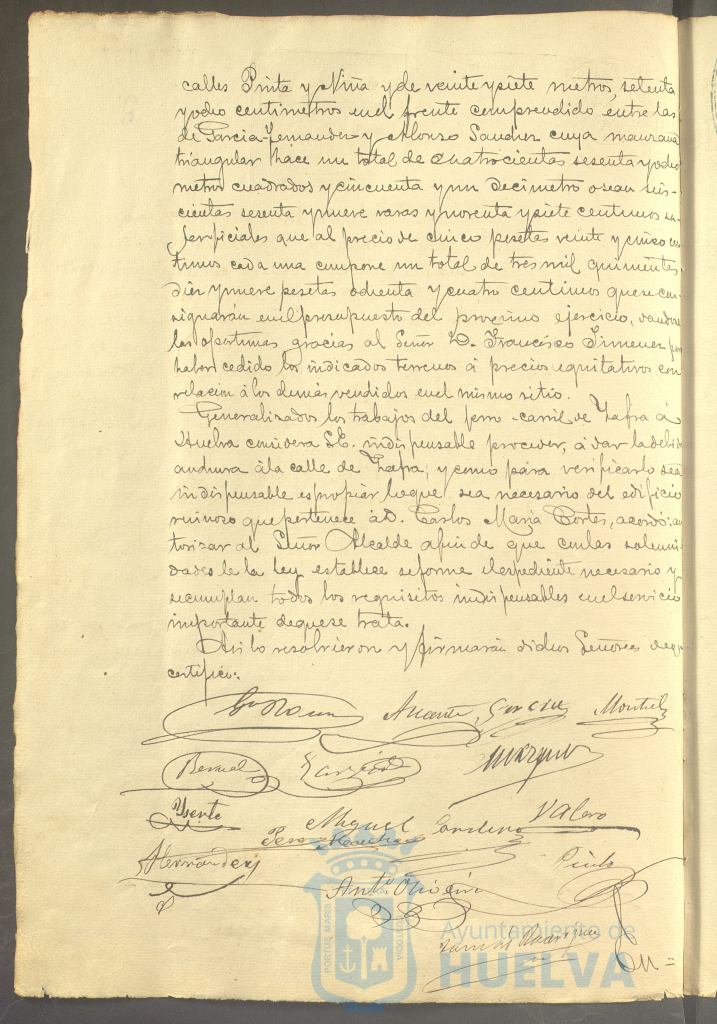 calles Pinta y Niña y de veinte y siete metros, setenta
y ocho centimetros en el frente comprendido entre las
de Garcia-Fernandez y Alonso Sanchez cuya manzana
triangular hace un total de cuatrocientas sesenta y ocho
metros cuadrados y cincuenta y un decimetro o sean seis-
cientas sesenta y nueve varas y noventa y siete centimos su-
perficiales que al precio de cinco pesetas veinte y cinco cen
timos cada una compone un total de tres mil quinientas
diez y nueve pesetas ochenta y cuatro centimos que se con-
signarán en el presupuesto del proximo ejercicio, dandose
las oportunas gracias al Señor D. Francisco Jimenez por
haber cedido los indicados terrenos á precios equitativos con
relacion á los demás vendidos en el mismo sitio.
Generalizados los trabajos del ferro-carril de Zafra á
Huelva considera S.E. indispensable proceder, á dar la debida
anchura á la calle de Zafra; y como para verificarlo sea
indispensable espropiar lo que sea necesario del edificio
ruinoso que pertenece á D. Carlos Maria Cortes, acordó: au
torizar al Señor Alcalde afin de que con las solemni-
dades que la ley establece se forme el espediente necesario y
se cumplan todos los requisitos indispensables en el servicio
importante de que se trata.
Asi lo resolvieron y firmarán dichos Señores de que
certifico:
Garcia Montiel
Bernal Garrido Marquez
Ysente Miguel Valero
Perez
Hernandez Pinto
Antº
Rodriguez
PORTUS MARIS
CUSTODIA
Ayuntamiento de
HUELVA